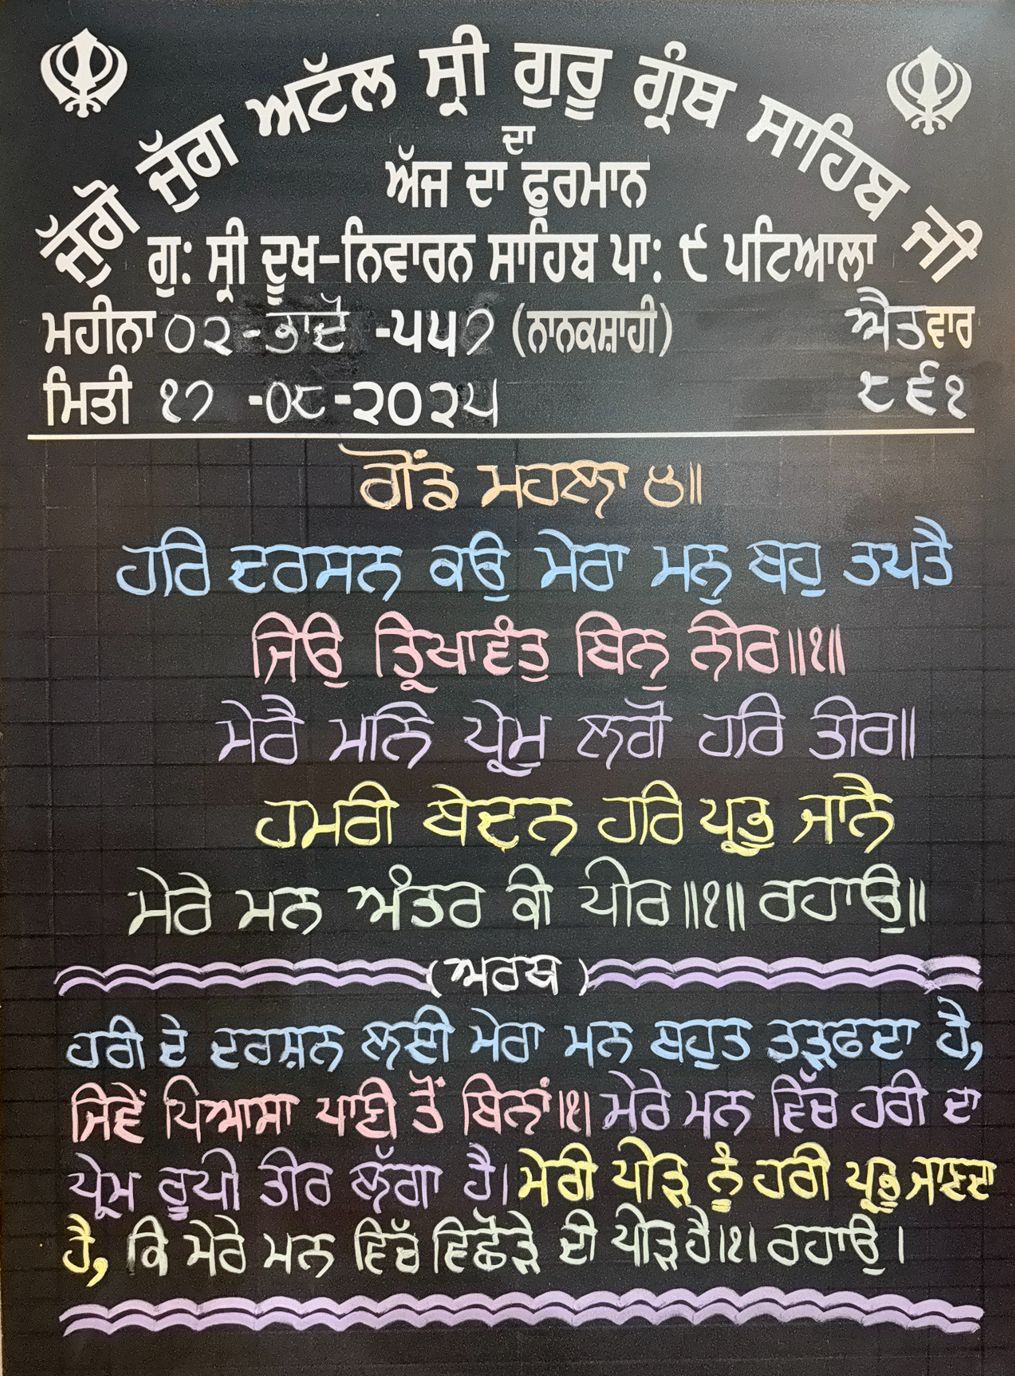 ਜੁੱਗੋ ਜੁੱਗ ਅਟੱਲ ਸ੍ਰੀ ਗੁਰੂ ਗ੍ਰੰਥ ਸਾਹਿਬ ਜੀ
ਦਾ
ਅੱਜ ਦਾ ਫੂਰਮਾਨ
ਗੁ: ਸ੍ਰੀ ਦੂਖ-ਨਿਵਾਰਨ ਸਾਹਿਬ ਪਾ: ੯ ਪਟਿਆਲਾ
ਮਹੀਨਾ ੦੨-ਭਾਦੋਂ -੫੫੭ (ਨਾਨਕਸ਼ਾਹੀ) ਐਤਵਾਰ
ਮਿਤੀ ੧੭ -੦੮-੨੦੨੫ ੮੬੧
ਗੋਂਡ ਮਹਲਾ ੪॥
ਹਰਿ ਦਰਸਨ ਕਉ ਮੇਰਾ ਮਨੁ ਬਹੁ ਤਪਤੈ
ਜਿਉ ਤ੍ਰਿਖਾਵੰਤੁ ਬਿਨੁ ਨੀਰ॥੧॥
ਮੇਰੈ ਮਨਿ ਪ੍ਰੇਮੁ ਲਗੋ ਹਰਿ ਤੀਰ॥
ਹਮਰੀ ਬੇਦਨ ਹਰਿ ਪ੍ਰਭੁ ਜਾਨੈ
ਮੇਰੇ ਮਨ ਅੰਤਰ ਕੀ ਪੀਰ॥੧॥ ਰਹਾਉ॥
(ਅਰਥ)
ਹਰੀ ਦੇ ਦਰਸ਼ਨ ਲਈ ਮੇਰਾ ਮਨ ਬਹੁਤ ਤੜਫਦਾ ਹੈ,
ਜਿਵੇਂ ਪਿਆਸਾ ਪਾਣੀ ਤੋਂ ਬਿਨਾਂ।੧। ਮੇਰੇ ਮਨ ਵਿੱਚ ਹਰੀ ਦਾ
ਪ੍ਰੇਮ ਰੂਪੀ ਤੀਰ ਲੱਗਾ ਹੈ। ਮੇਰੀ ਪੀੜ ਨੂੰ ਹਰੀ ਪ੍ਰਭੂ ਜਾਣਦਾ
ਹੈ, ਕਿ ਮੇਰੇ ਮਨ ਵਿੱਚ ਵਿਛੋੜੇ ਦੀ ਪੀੜ ਹੈ।੧। ਰਹਾਉ।